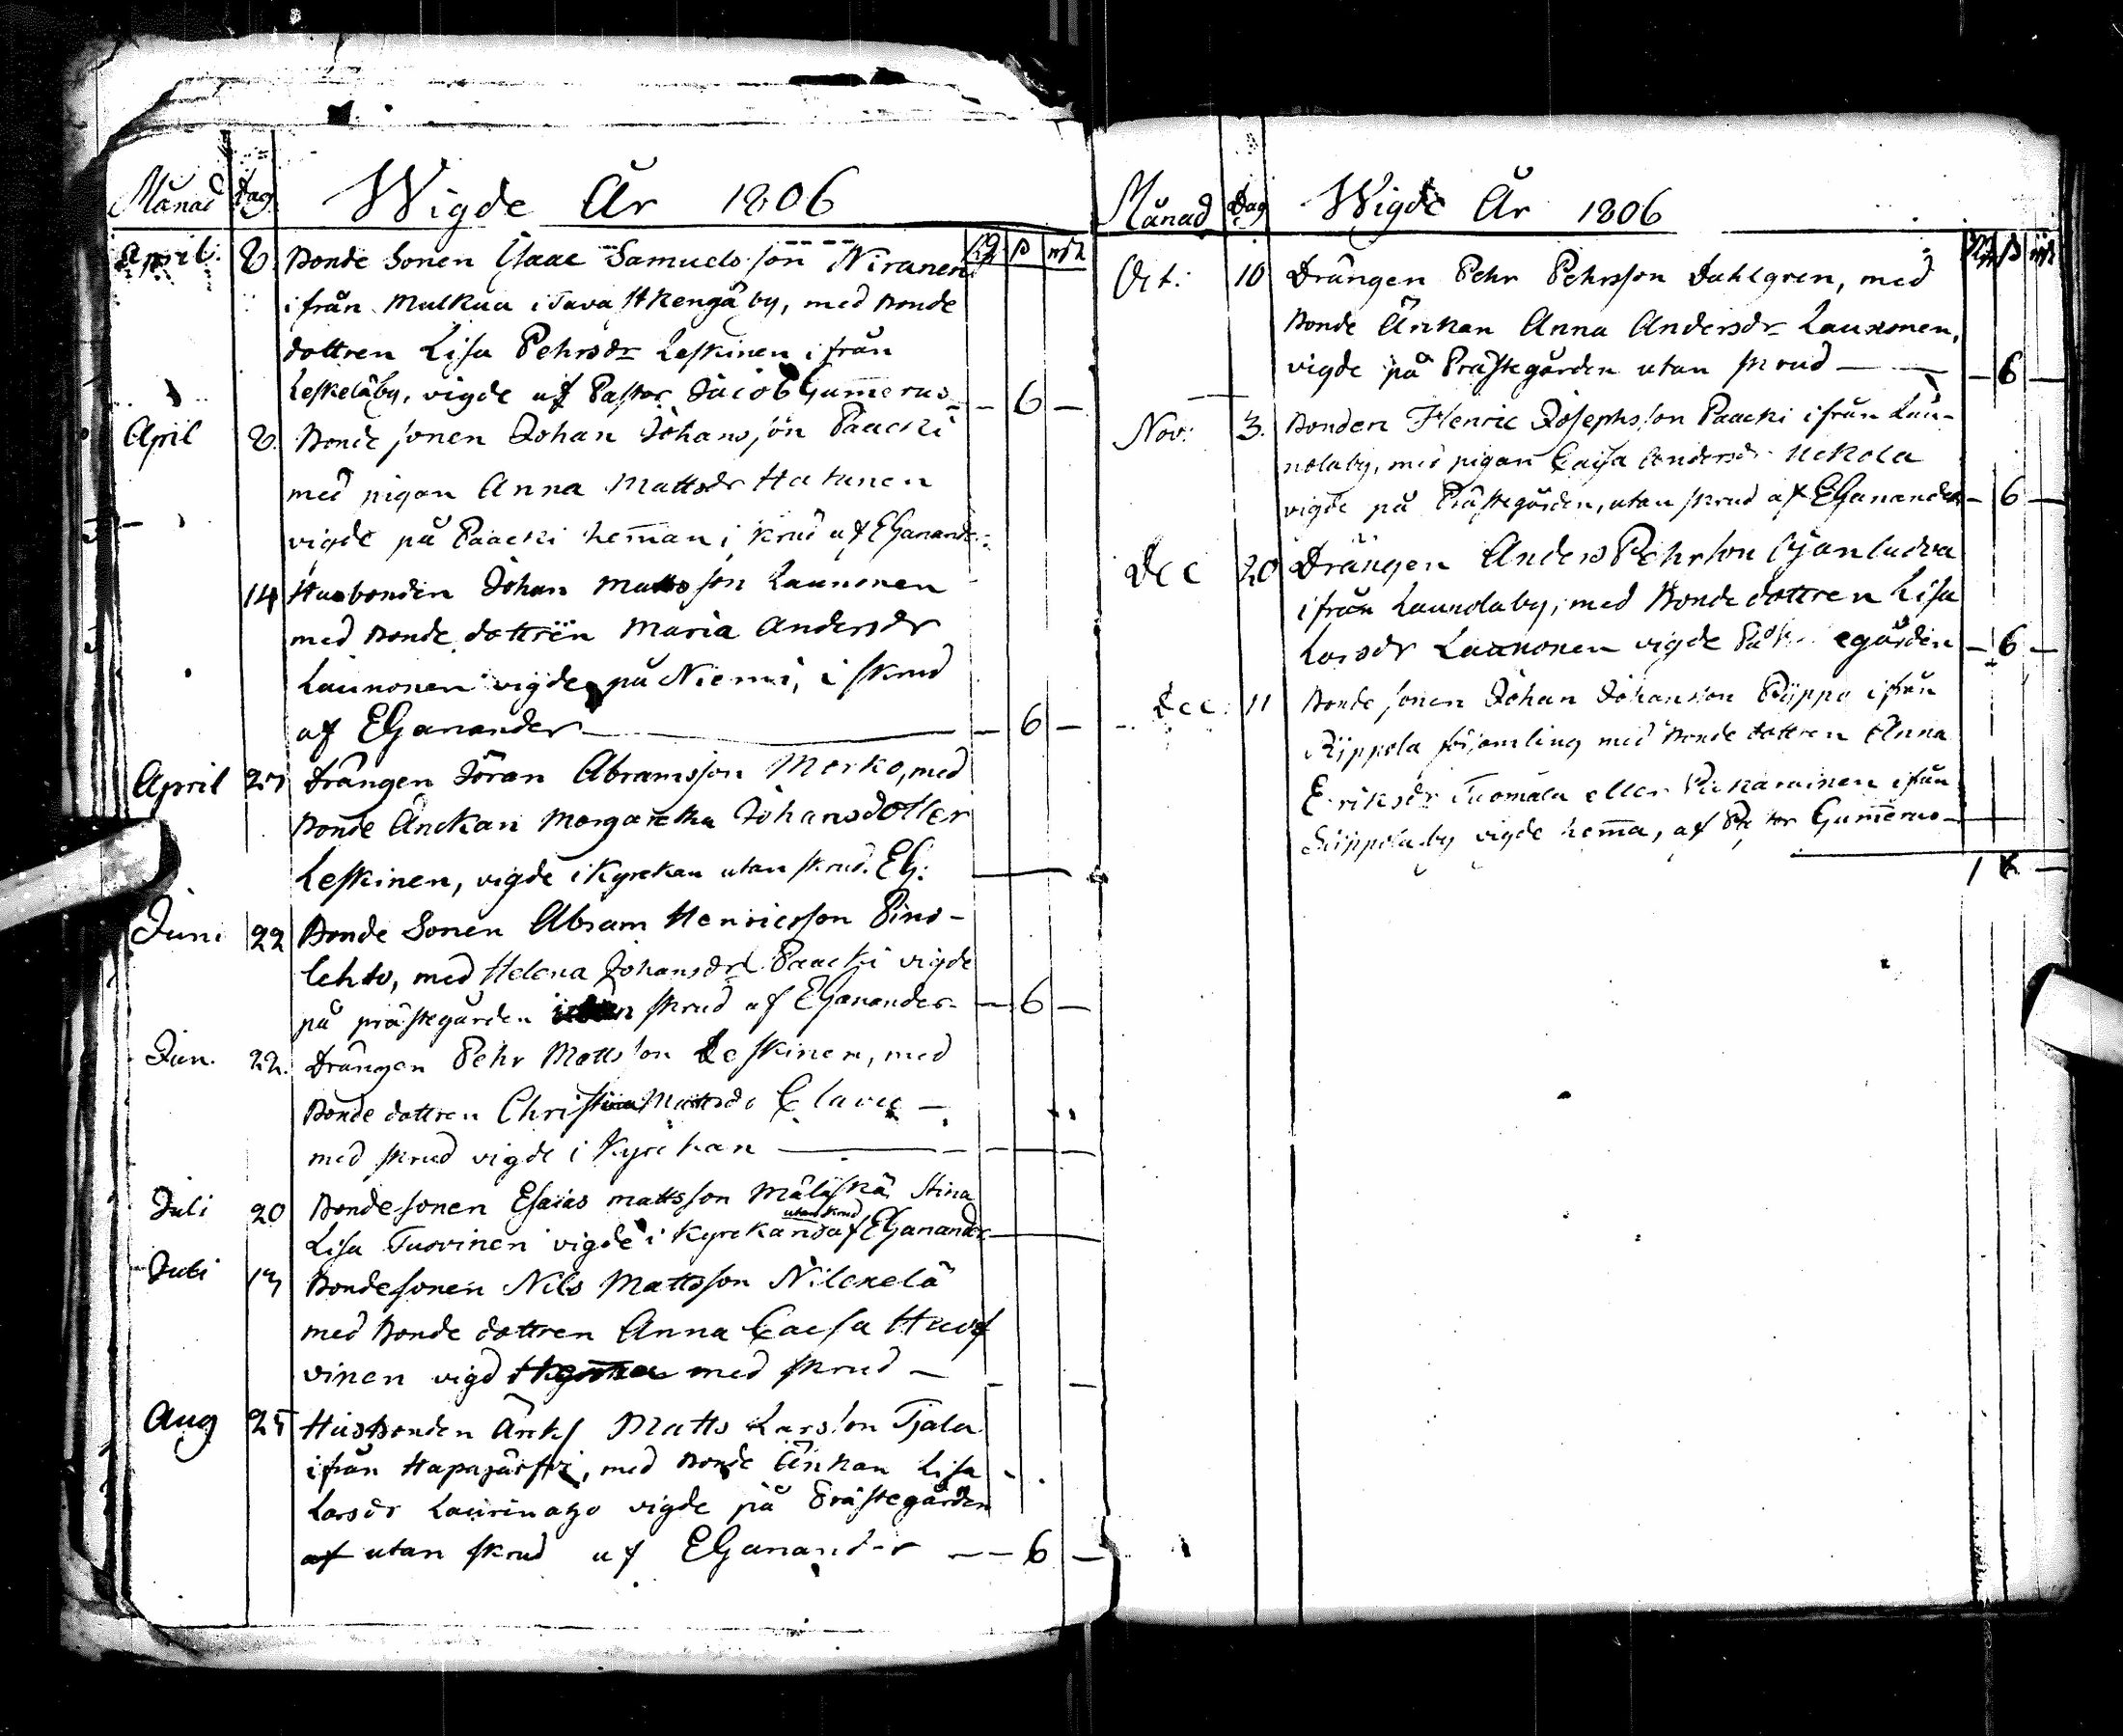 Månad Dag Wigde År 1806
Rd ß rst
April. 8. Bonde Sonen Isaac Samuelsson Niranen
ifrån Mulkua i Tavastkengä by, med Bonde
dottren Lisa Pehrsdr Leskinen ifrån
Leskeläby, vigde af Pastor Jacob Gum̅erus — 6 —
April 8. Bonde sonen Johan Johansson Paacki
med pigan Anna Mattsdr Hatunen
vigde på Paacki hem̅an i skrud af EGanander
14 Husbonden Johan Mattsson Launonen
med Bonde dottren Maria Andersdr
Launonen vigde på Niemi, i skrud
af EGanander — 6 —
April 27 Drängen Jöran Abramsson Merko, med
Bonde Änckan Margaretha Johansdotter
Leskinen, vigde i Kyrckan utan skrud. EG:
Juni 22 Bonde Sonen Abram Henricsson Pino-
lehto, med Helena Johansdr Paacki vigde
på prästegården skrud af EGanander — 6 —
Jun. 22. Drängen Pehr Mattsson Leskinen, med
Bonde dottren Christina Mattsdr
med skrud vigde i Kyrckan
Juli 20 Bondesonen Esaias Mattsson Mäläskä Stina
utan skrud
Lisa Tuovinen vigde i Kyrckan af EGanander
Juli 13 Bondesonen Nils Mattsson Nilckelä
med Bonde dottren Anna Caisa Huof
vinen vigd med skrud —
Aug 25 Husbonden Änkl Matts Larsson Tjala
ifrån Hapajärfvi, med Bonde Änkan Lisa
Larsdr Laurinaho vigde på Prästegården
af utan skrud af EGanander — 6 —
Månad Dag Wigde År 1806
Oct: 10 Drängen Pehr Pehrsson Dahlgren, med
Bonde Änkan Anna Andersdr Launonen,
vigde på Prästegården utan skrud — 6 —
Nov: 3. Bonden Henric Josephsson Paacki ifrån Lau-
nolaby, med pigan Caisa Andersdr Uckola
vigde på Prästegården, utan skrud af EGanander — 6 —
Dec 28 Drängen Anders Pehrsson
ifrån Launolaby, med Bonde dottren Lisa
Larsdr Launonen vigde egården — 6 —
Dec: 11 Bonde sonen Johan Johansson Pyppo ifrån
Pyppola församling med Bonde dottren Anna
Eriksdr Tuomala eller ifrån
by vigde hem̅a, af Pastor Gum̅erus